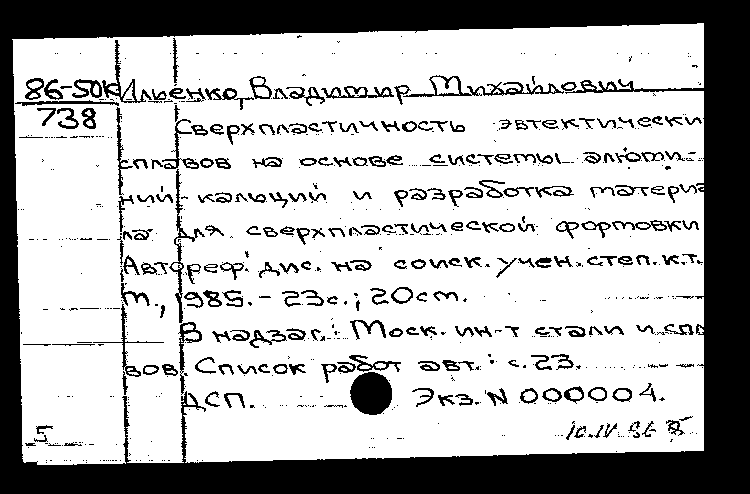 86-50к Ильенко, Владимир Михайлович
738
Сверхпластичность эвтектически
сплавов на основе системы алюми-
ний-кальций и разработка материа
ла для сверхпластической формовки
Автореф. дис. на соиск. учен. степ. к.т.
М., 1985. - 23с.; 20см.
В надзаг.: Моск. ин-т стали и спла
вов. Список работ авт.: с. 23.
ДСП. Экз. N 000004.
5 10.IV.86